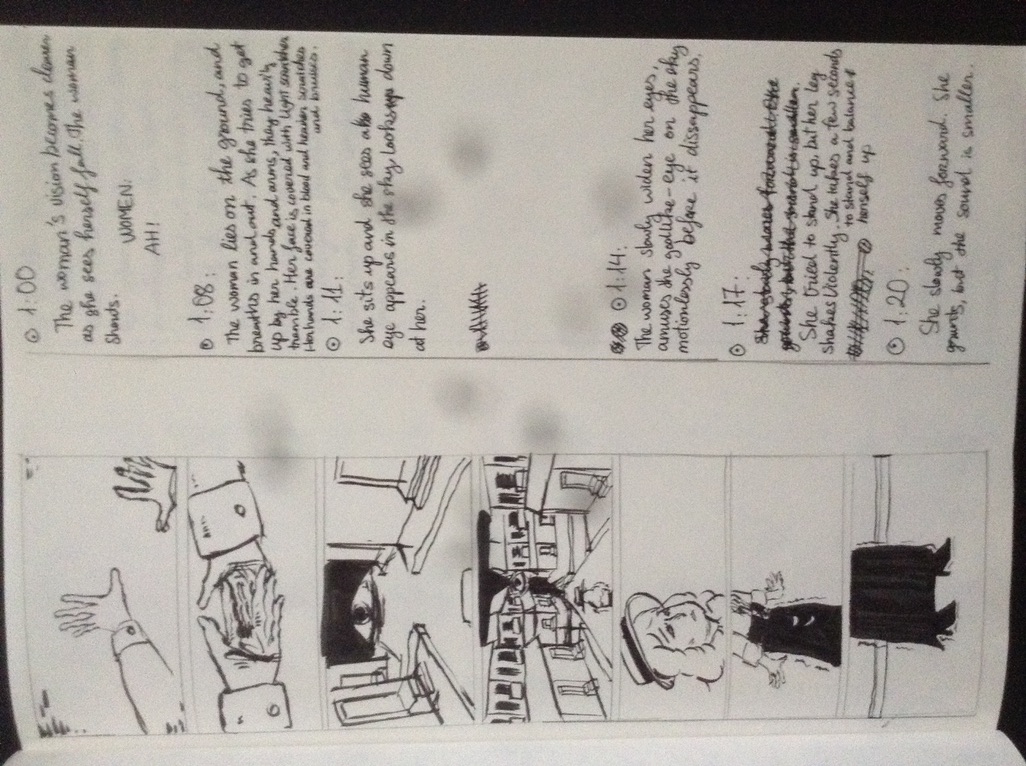 1:00
The woman's vision becomes clearer
as she sees herself fall. The woman
Shouts.
WOMEN:
AH!
1:08:
The woman lies on the ground, and
breathes in and out. As she tries to get
up by her hands and arms, they heavily
tremble. Her face is covered with light scratches
Her hands are covered in blood and heavier scratches
and bruises.
1:11:
She sits up and she sees a human
eye appears in the sky, looks down
at her.
1:14:
The woman slowly widen her eyes,
she godlike-eye on the sky
motionlessly before it dissappears.
1:17:
She tried to stand up, but her leg
shakes violently. She takes a few seconds
to stand and balances
herself up
1:20:
She slowly moves forward. She
grunts, but the sound is smaller.